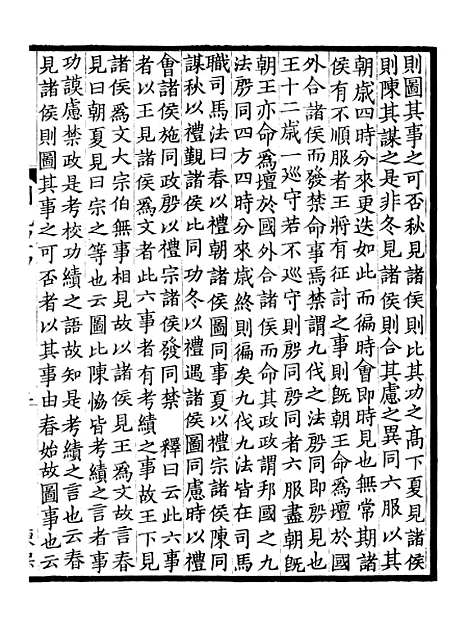 則圖其事之可否秋見諸侯則比其功之高下夏見諸侯
則陳其謀之是非冬見諸侯則合其慮之異同六服以其
朝歳四時分來更迭如此而徧時會即時見也無常期諸
侯有不順服者王將有征討之事則旣朝王命爲壇於國
外合諸侯而發禁命事焉禁謂九伐之法殷同即殷見也
王十二歳一巡守若不巡守則殷同殷同者六服盡朝旣
朝王亦命爲壇於國外合諸侯而命其政政謂邦國之九
法殷同四方四時分來歳終則徧矣九伐九法皆在司馬
職司馬法曰春以禮朝諸侯圖同事夏以禮宗諸侯陳同
謀秋以禮覲諸侯比同功冬以禮遇諸侯圖同慮時以禮
會諸侯施同政殷以禮宗諸侯發同禁 釋曰云此六事
者以王見諸侯爲文者此六事者有考績之事故王下見
諸侯爲文大宗伯無事相見故以諸侯見王爲文故言春
見曰朝夏見曰宗之等也云圖比陳恊皆考績之言者事
功謨慮禁政是考校功績之語故知是考績之言也云春
見諸侯則圖其事之可否者以其事由春始故圖事也云